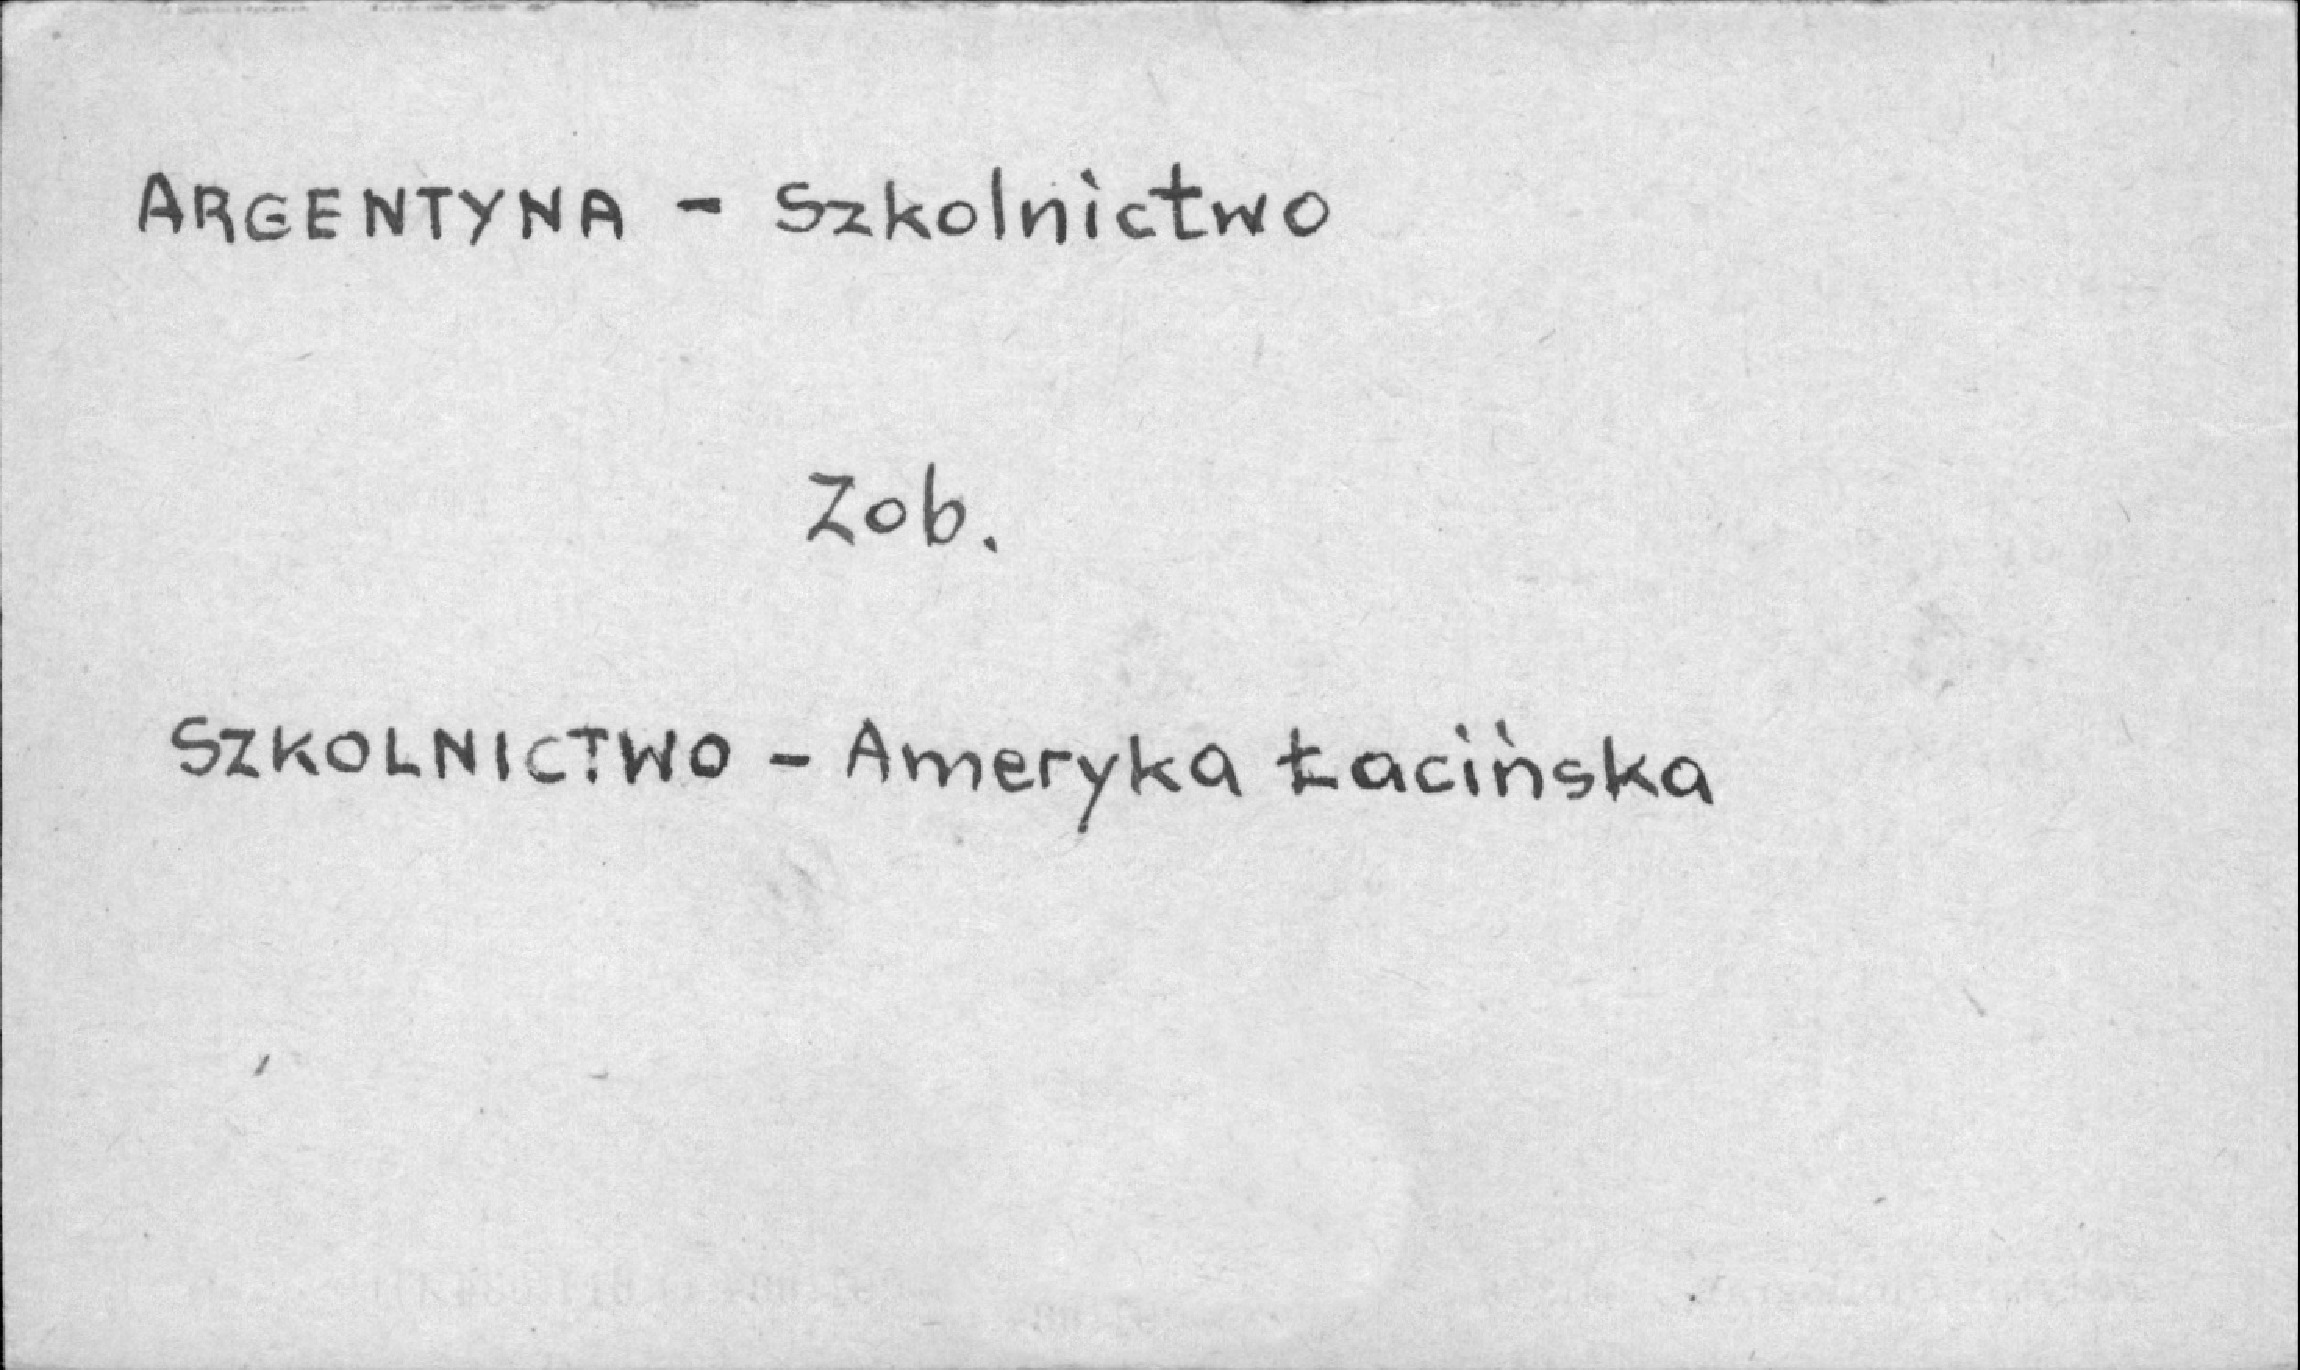 ARGENTYNA - Szkolnictwo
Zob.
SZKOLNICTWO - Ameryka Łacińska